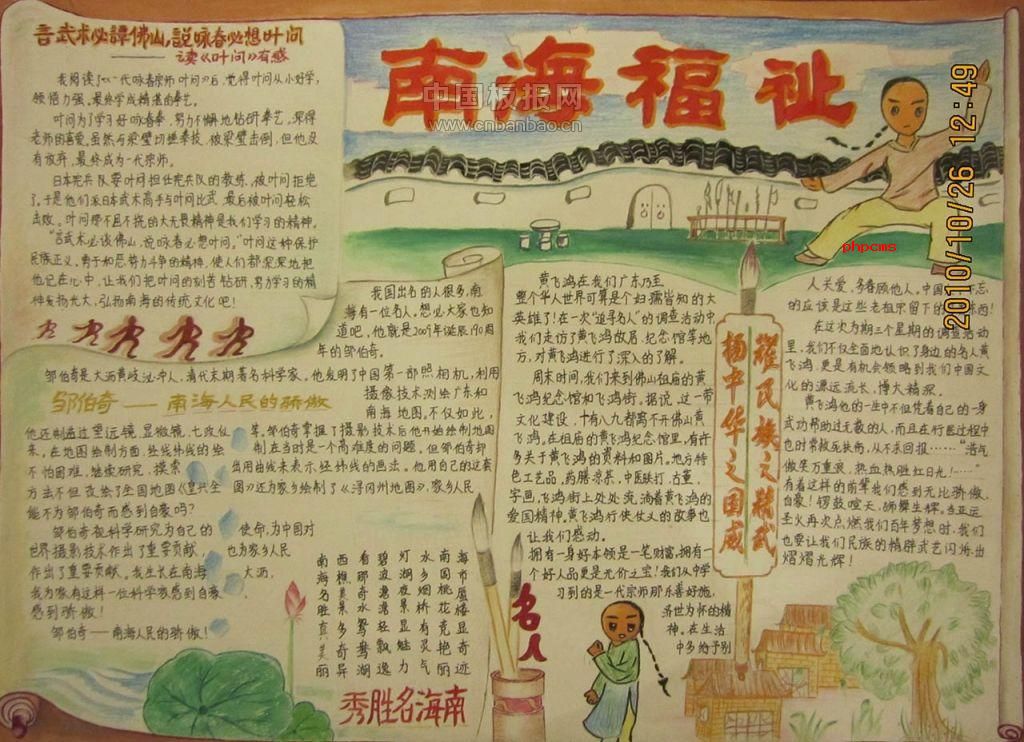 言武术必譚佛山,説咏春必想叶问
—— 读《叶问》有感
我阅读了《一代咏春宗师 叶问》后,觉得叶问从小好学,
领悟力强,最终学成精湛的拳艺。
叶问为了学习好咏春拳,努力不懈地钻研拳艺,深得
老师的喜爱,虽然与梁璧切磋拳技,被梁璧击倒,但他没
有放弃,最终成为一代宗师。
日本宪兵队要叶问担任宪兵队的教练,被叶问拒绝
了,于是他们派日本武术高手与叶问比武,最后被叶问轻松
击败。叶问那不屈不挠的大无畏精神是我们学习的精神。
“言武术必谈佛山,说咏春必想叶问。”叶问这种保护
民族正义,勇于和恶势力斗争的精神,使人们都深深地把
他记在心中,让我们把叶问的刻苦钻研,努力学习的精
神发扬光大,弘扬南海的传统文化吧!
南海福祉
中国板报网
www.cnbanbao.cn
2010/10/26 12:49
phpcms
我国出名的人很多,南
海有一位名人,想必大家也知
道吧,他就是2009年诞辰190周
年的邹伯奇。
邹伯奇是大沥黄岐泌冲人,清代末期著名科学家。他发明了中国第一部照相机,利用
摄像技术测绘广东和
南海地图。不仅如此,
邹伯奇——南海人民的骄傲
他还制造过望远镜,显微镜,七政仪
等。邹伯奇掌握了摄影技术后他开始绘制地图
来。在地图绘制方面,经线纬线的绘
制在当时是一个高难度的问题,但邹伯奇却
不怕困难,继续研究,摸索
出用曲线来表示经纬线的画法。他用自己的这套
方法不但改绘了全国地图《皇舆全
图》还为家乡绘制了《浔冈州地图》,家乡人民
能不为邹伯奇而感到自豪吗?
邹伯奇视科学研究为自己的
使命,为中国对
世界摄影技术作出了重要贡献,
也为家乡人民
作出了重要贡献。我生长在南海
大沥,
我为家有这样一位科学家感到自豪
感到骄傲!
邹伯奇——南海人民的骄傲!
南西看碧灯水南海
海樵那波湖乡国市
名美奇潋夜烟桃厦
胜景水潋景桥花楼
真多鸳轻显有竞显
美奇鸯飘魅灵艳奇
丽异湖逸力气丽迹
秀胜名海南
名人
黄飞鸿在我们广东乃至
整个华人世界可算是个妇孺皆知的大
英雄了!在一次“追寻名人”的调查活动中
我们走访了黄飞鸿故居,纪念馆等地
方,对黄飞鸿进行了深入的了解。
周末时间,我们来到佛山祖庙的黄
飞鸿纪念馆和飞鸿街。据说,这一带
文化建设,十有八九都离不开佛山黄
飞鸿,在祖庙的黄飞鸿纪念馆里,有许
多关于黄飞鸿的资料和图片。地方特
色工艺品,药膳凉茶,中医跌打,古董,
字画,飞鸿街上处处流淌着黄飞鸿的
爱国精神。黄飞鸿行侠仗义的故事也
让我们感动。
拥有一身好本领是一笔财富,拥有一
个好人品更是无价之宝!我们从中学
习到的是一代宗师那乐善好施,
济世为怀的精
神。在生活
中多给予别
耀民族之精武
扬中华之国威
人关爱,多眷顾他人,中国人不忘
的应该是这些老祖宗留下的东西!
在这次为期三个星期的调查活动
里,我们不仅全面地认识了身边的名人黄
飞鸿,更是有机会领略到我们中国文
化的源远流长,博大精深。
黄飞鸿他的一生中不但凭着自己的一身
武功帮助过无数的人,而且在行医过程中
也时常救死扶伤,从不求回报……“浩气
傲笑万重浪,热血热胜红日光!……”
有着这样的前辈我们感到无比骄傲,
自豪!锣鼓喧天,狮舞生辉。当亚运
圣火再次点燃我们百年梦想时,我们
也要让我们民族的精辟武艺闪烁出
熠熠光辉!